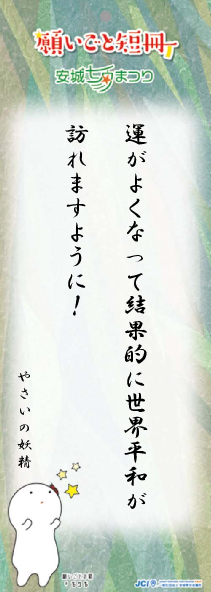 願いごと短冊
安城七夕まつり
運がよくなって結果的に世界平和が
訪れますように！
やさいの妖精
JCI